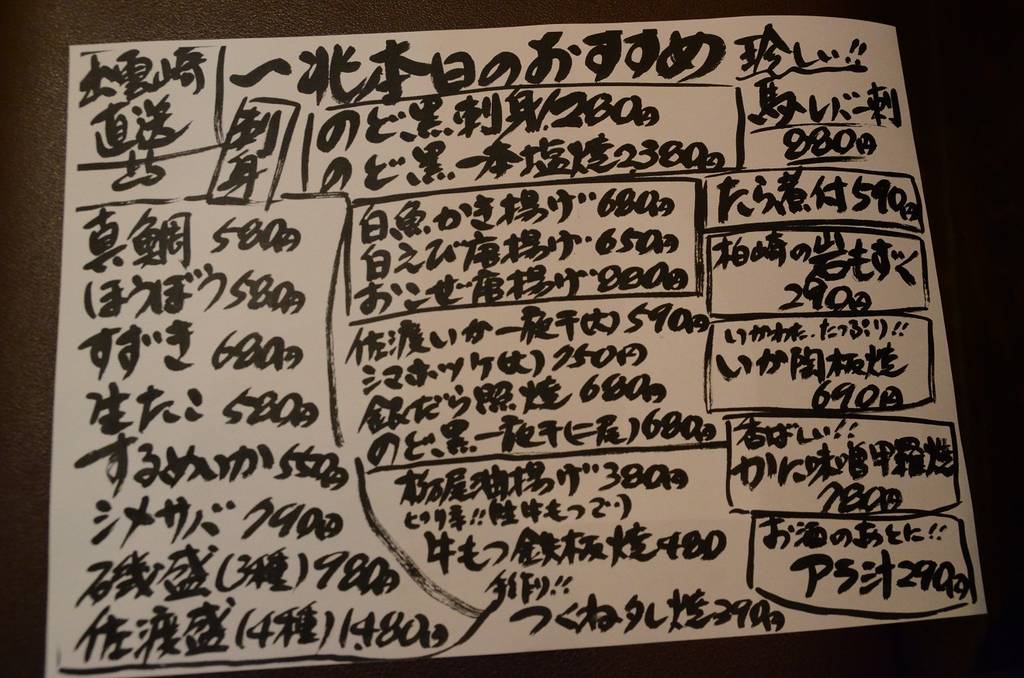 出雲崎
直送
一北本日のおすすめ
刺身
のど黒刺身1,280円
のど黒一本塩焼2,380円
珍しい!!
馬レバー刺
880円
真鯛 580円
ほうぼう580円
すずき 680円
生たこ 580円
するめいか550円
シメサバ 790円
磯盛(3種)980円
佐渡盛(4種)1,480円
白魚かき揚げ680円
白えび唐揚げ650円
おこぜ唐揚げ880円
佐渡いか一夜干(大)590円
シマホッケ(大)750円
銀だら照焼 680円
のど黒一夜干(二尾)680円
栃尾油揚げ380円
ピリ辛!!(生牛もつで)
牛もつ鉄板焼480
手作り!!
つくねタレ焼290円
たら煮付590円
柏崎の岩もずく
290円
いかわた、たっぷり!!
いか陶板焼
690円
香ばしい!!
かに味噌甲羅焼
780円
お酒のあとに!!
アラ汁290円